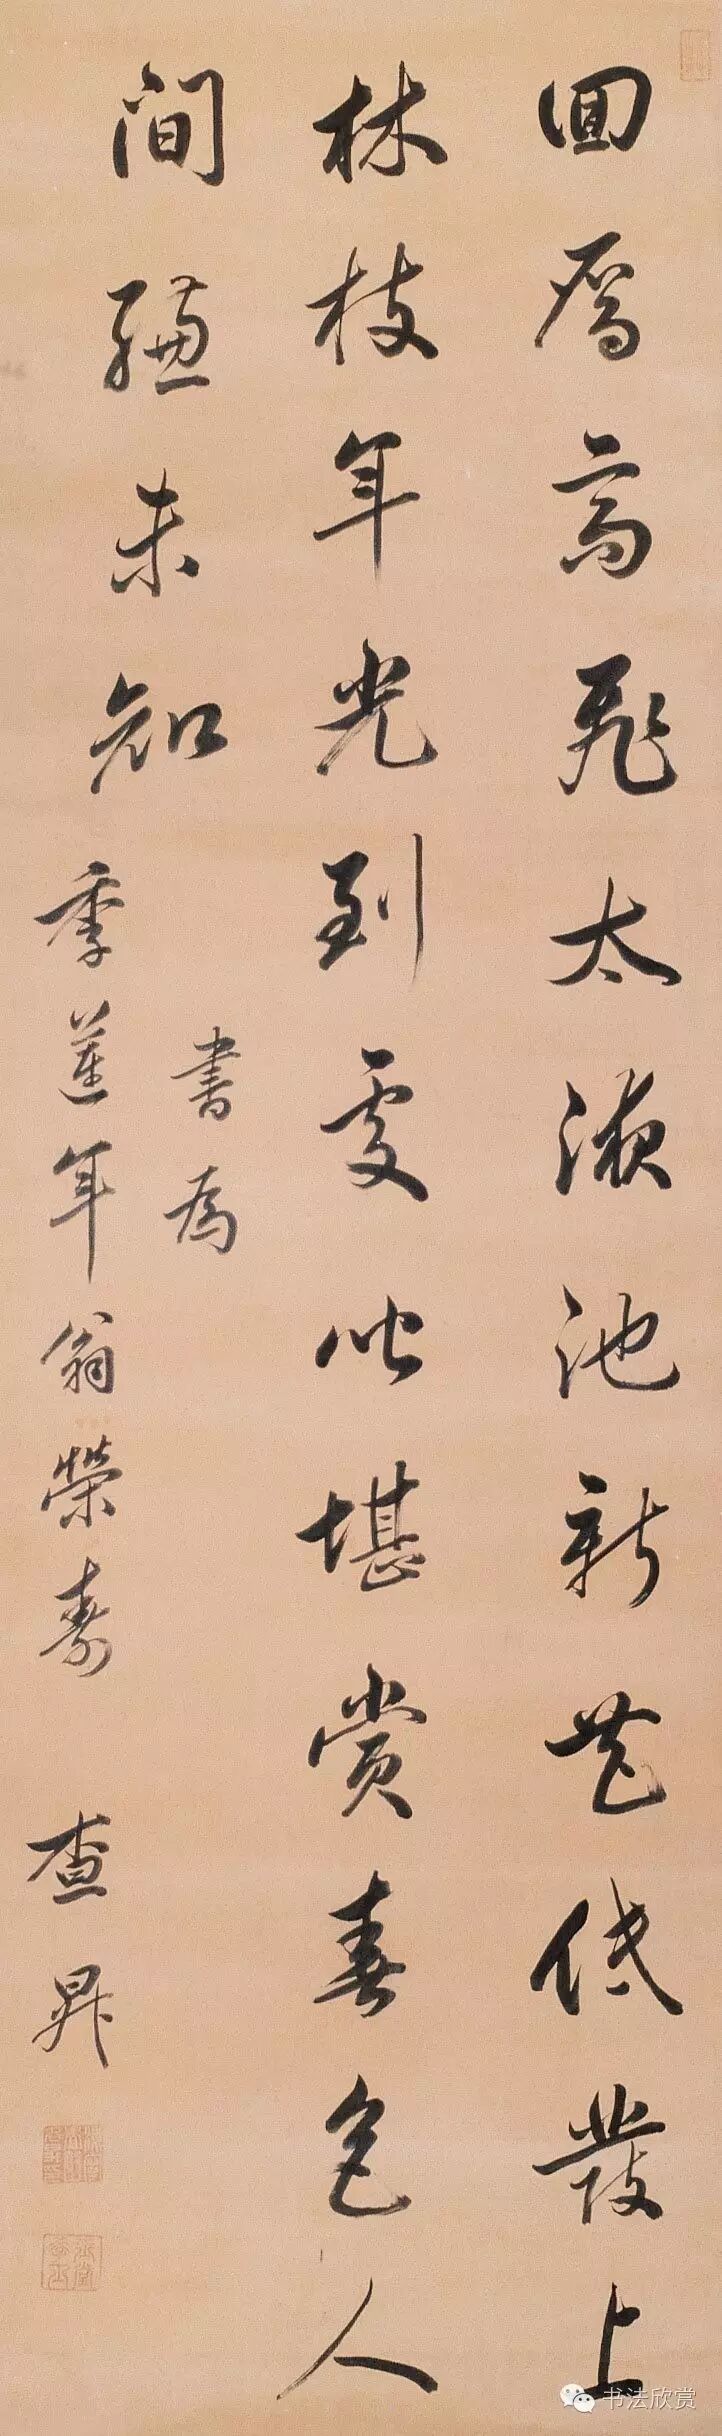 回雁高飛太液池新花低發上
林枝年光到處皆堪賞春色人
間總未知
書為
季蓮年翁榮壽
查昇
书法欣赏